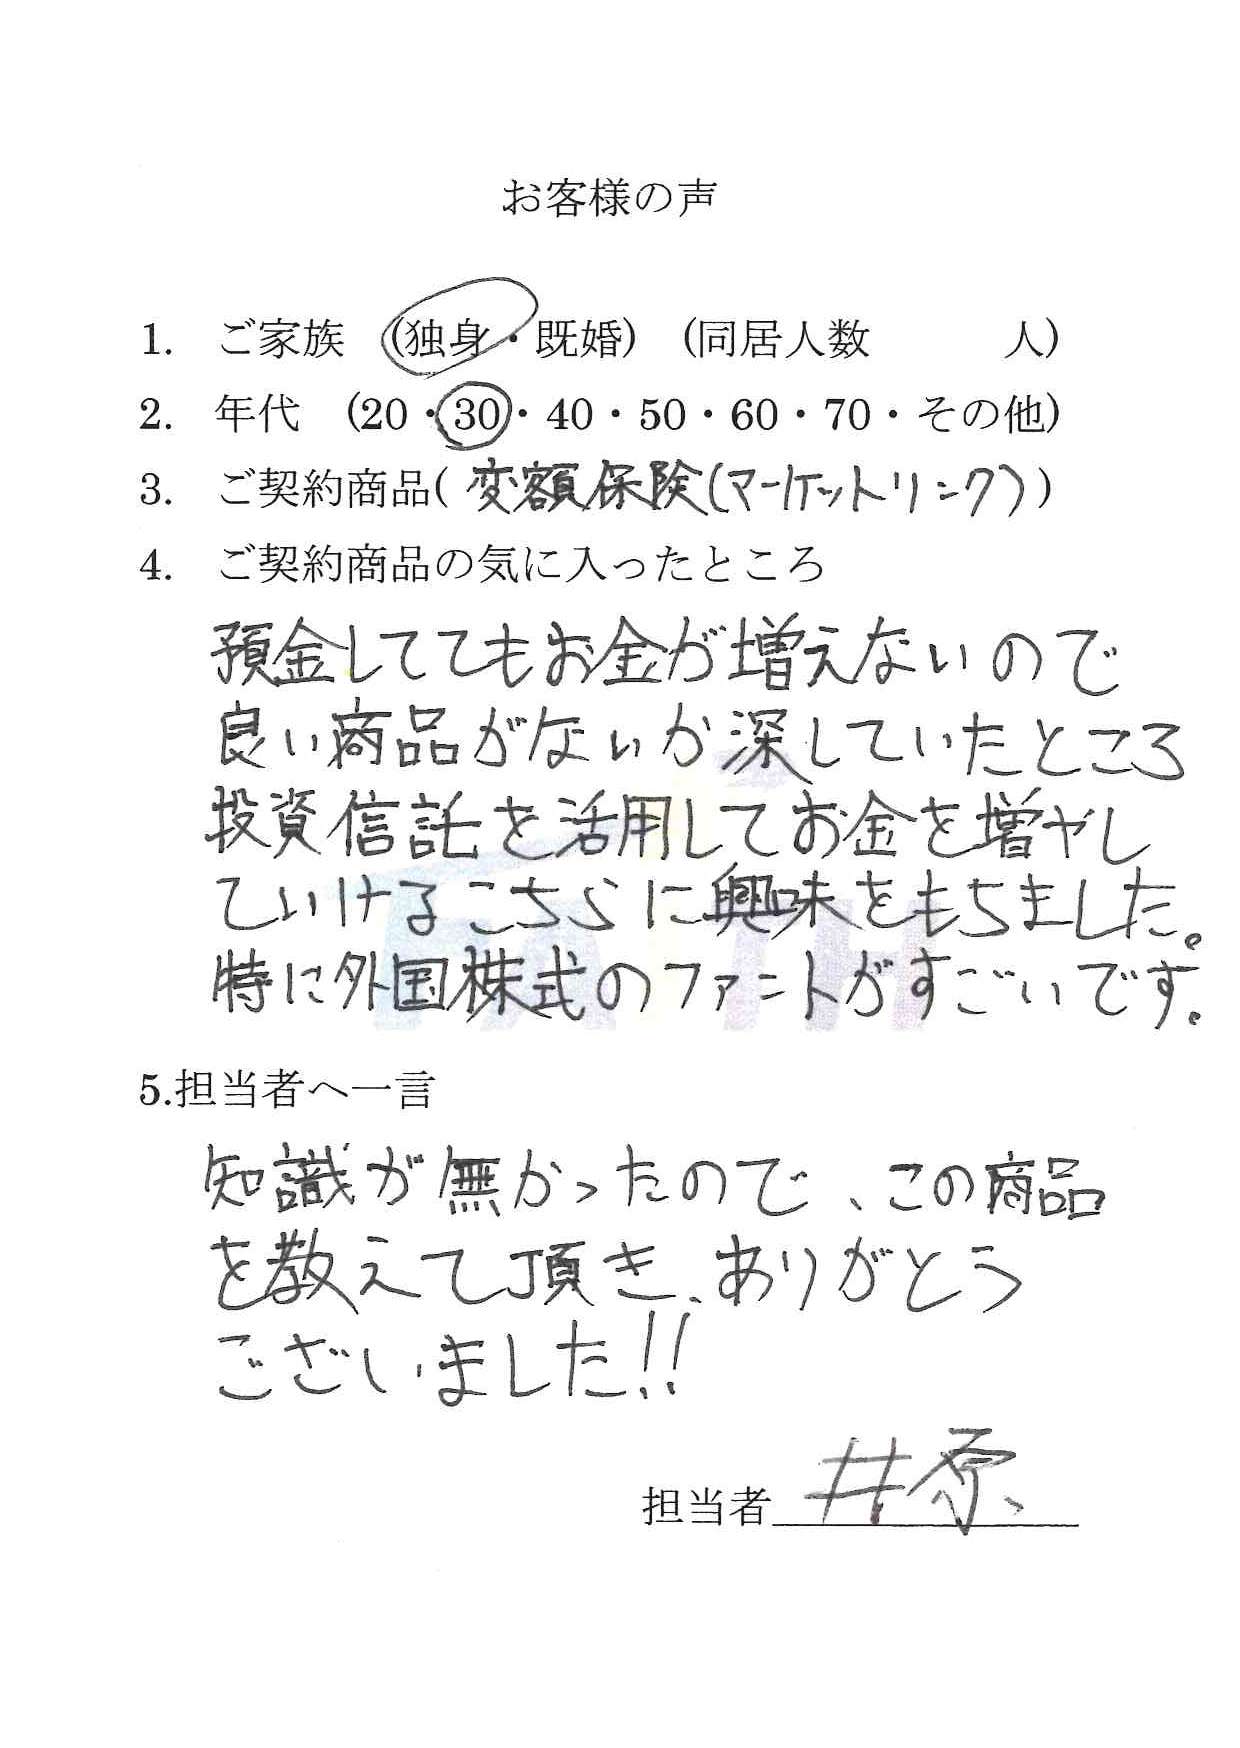 お客様の声
1. ご家族 (独身・既婚) (同居人数 人)
2. 年代 (20・30・40・50・60・70・その他)
3. ご契約商品(変額保険(マーケットリンク))
4. ご契約商品の気に入ったところ
預金しててもお金が増えないので
良い商品がないか深していたところ
投資信託を活用してお金を増やし
ていけるこちらに興味をもちました。
特に外国株式のファントがすごいです。
FAITH
5.担当者へ一言
知識が無かったので、この商品
を教えて頂き、ありがとう
ございました!!
担当者 井原